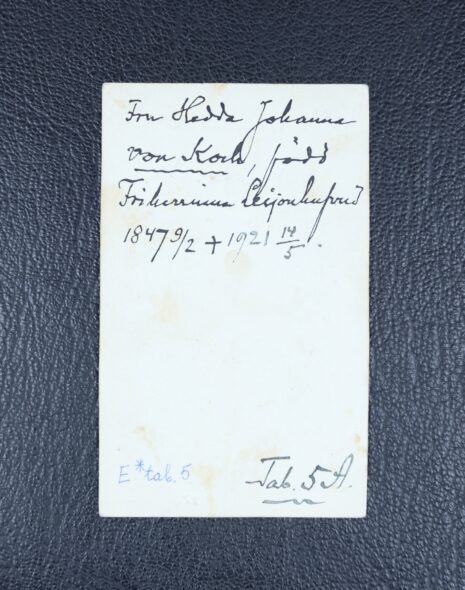 Fru Hedda Johanna
von Koch, född
Friherrinna Leijonhufvud
1847 9/2 + 1921 14/5.
E*tab. 5
Tab. 5 A.